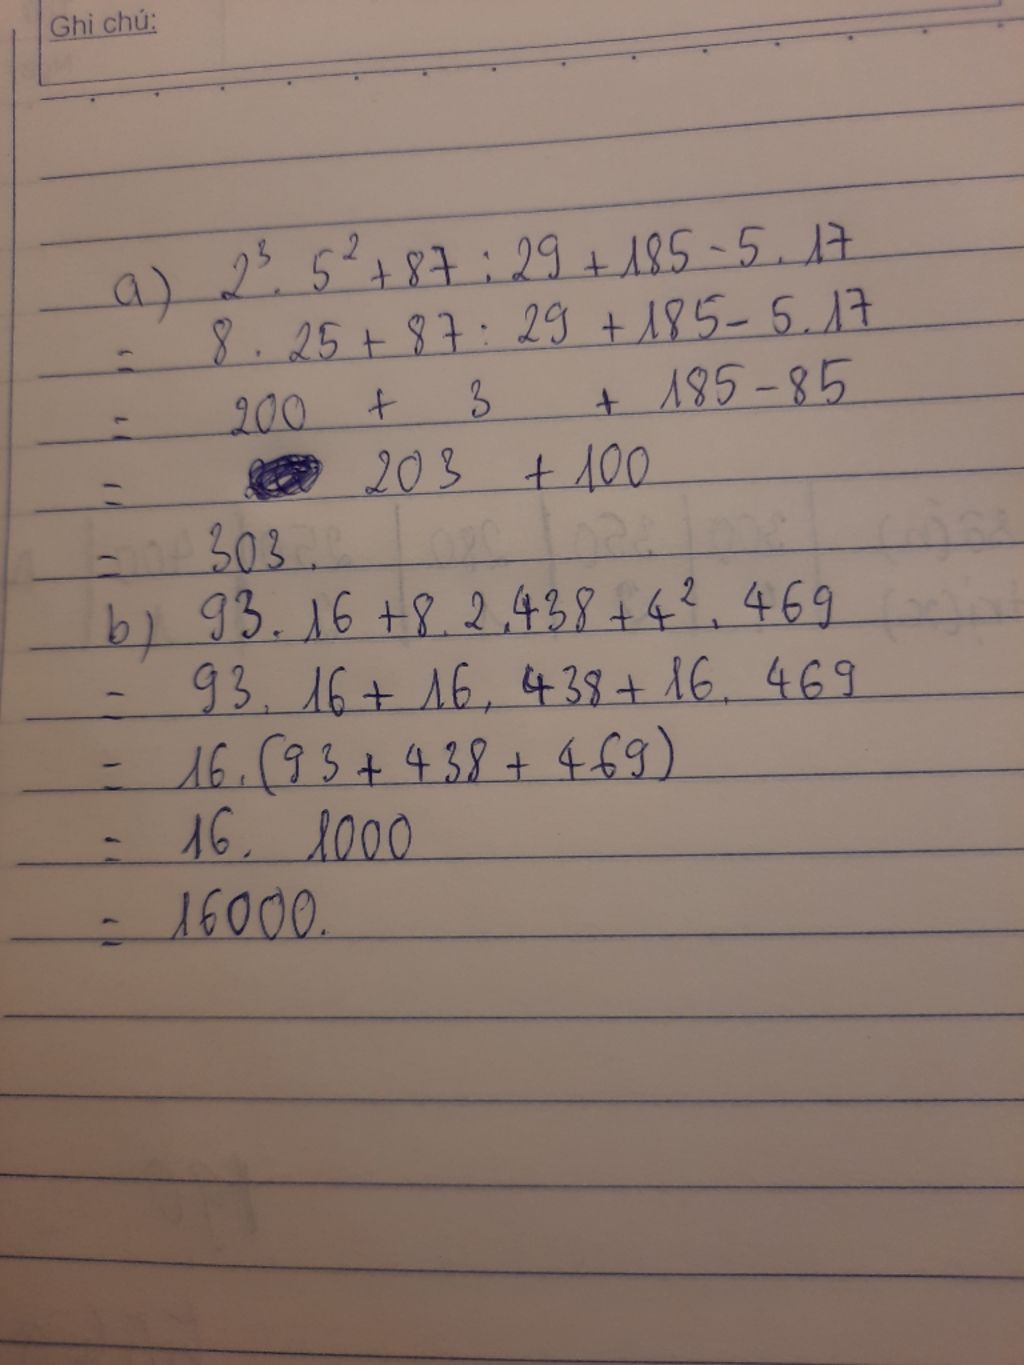 Ghi chú:
a) 2³. 5² + 87 : 29 + 185 - 5. 17
= 8. 25 + 87 : 29 + 185 - 5. 17
= 200 + 3 + 185 - 85
= 203 + 100
= 303.
b) 93. 16 + 8. 2. 438 + 4². 469
= 93. 16 + 16. 438 + 16. 469
= 16. (93 + 438 + 469)
= 16. 1000
= 16000.